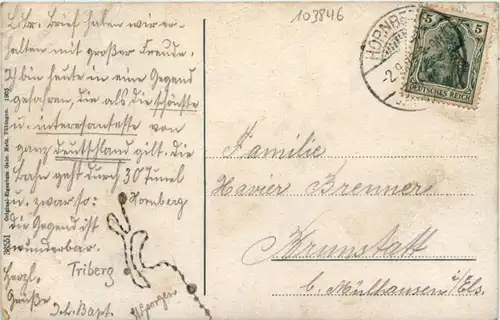 103846
HORNBERG
5
DEUTSCHES REICH
Lbr. Brief haben wir er-
halten mit großer Freude.
Ich bin heute in eine Gegend
gefahren, die als die schönste
u. interessanteste von
ganz Deutschland gilt. Die
Bahn geht durch 30 Tunel
u. zwar so: Hornberg
die Gegend ist
wunderbar.
Triberg
Herzl.
Grüße
Joh. Bapt.
Familie
Xavier Brenner
Brunstatt
b. Mülhausen i/Els.
38551 Original-Eigentum Gebr. Metz, Tübingen 1905